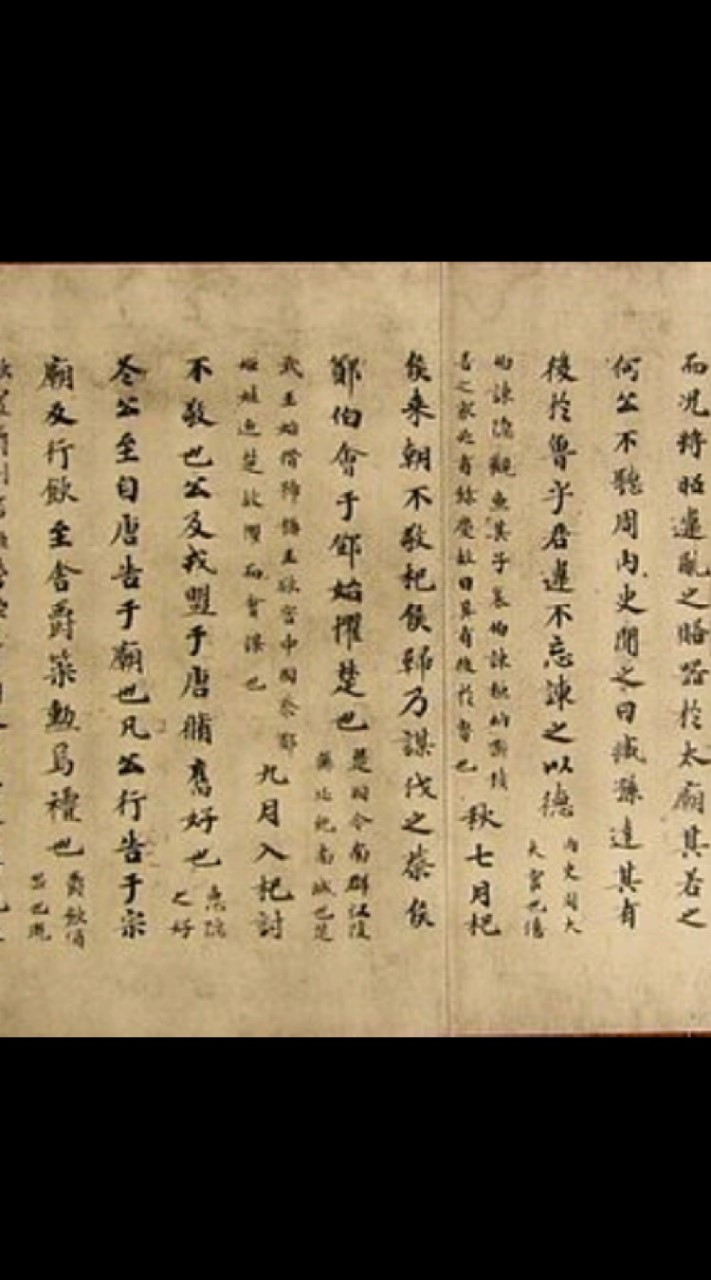 而况將昭違亂之賂器於太廟其若之
何公不聽周内史聞之曰臧孫達其有
後於魯乎君違不忘諫之以德
内史周大
夫官也僖
伯諫隱觀魚其子哀伯諫桓納鼎積
善之家必有餘慶故曰其有後於魯也
秋七月杞
侯来朝不敬杞侯歸乃謀伐之蔡侯
鄭伯會于鄧始懼楚也
楚国今南郡江陵
縣北紀南城也楚
武王始僭號稱王欲害中国蔡鄭
姬姓近楚故懼而會謀也
九月入杞討
不敬也公及戎盟于唐脩舊好也
惠隱
之好
冬公至自唐告于廟也凡公行告于宗
廟反行飲至舍爵策勳焉禮也
爵飲酒
器也既